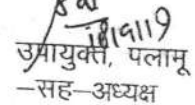 18/9/19
उपायुक्त, पलामू
–सह–अध्यक्ष